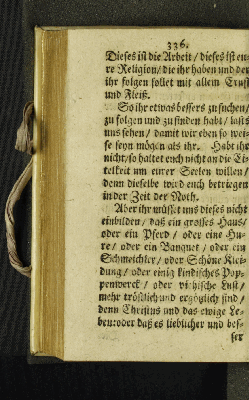 336.
Dieses ist die Arbeit / dieses ist eu-
re Religion / die ihr haben und der
ihr folgen sollet mit allem Ernst
und Fleiß.
So ihr etwas bessers zu suchen /
zu folgen und zu finden habt / lasts
uns sehen / damit wir eben so wei-
se seyn mögen als ihr. Habt ihr
nicht / so haltet euch nicht an die Ei-
telkeit um eurer Seelen willen /
denn dieselbe wird euch betriegen
in der Zeit der Noth.
Aber ihr müsset uns dieses nicht
einbilden / daß ein grosses Haus /
oder ein Pferd / oder eine Hu-
re / oder ein Banquet / oder ein
Schmeichler / oder Schöne Klei-
dung / oder einig kindisches Pop-
penwerck / oder viehische Lust /
mehr tröstlich und ergötzlich sind /
denn Christus und das ewige Le-
ben: oder daß es lieblicher und bes-
ser